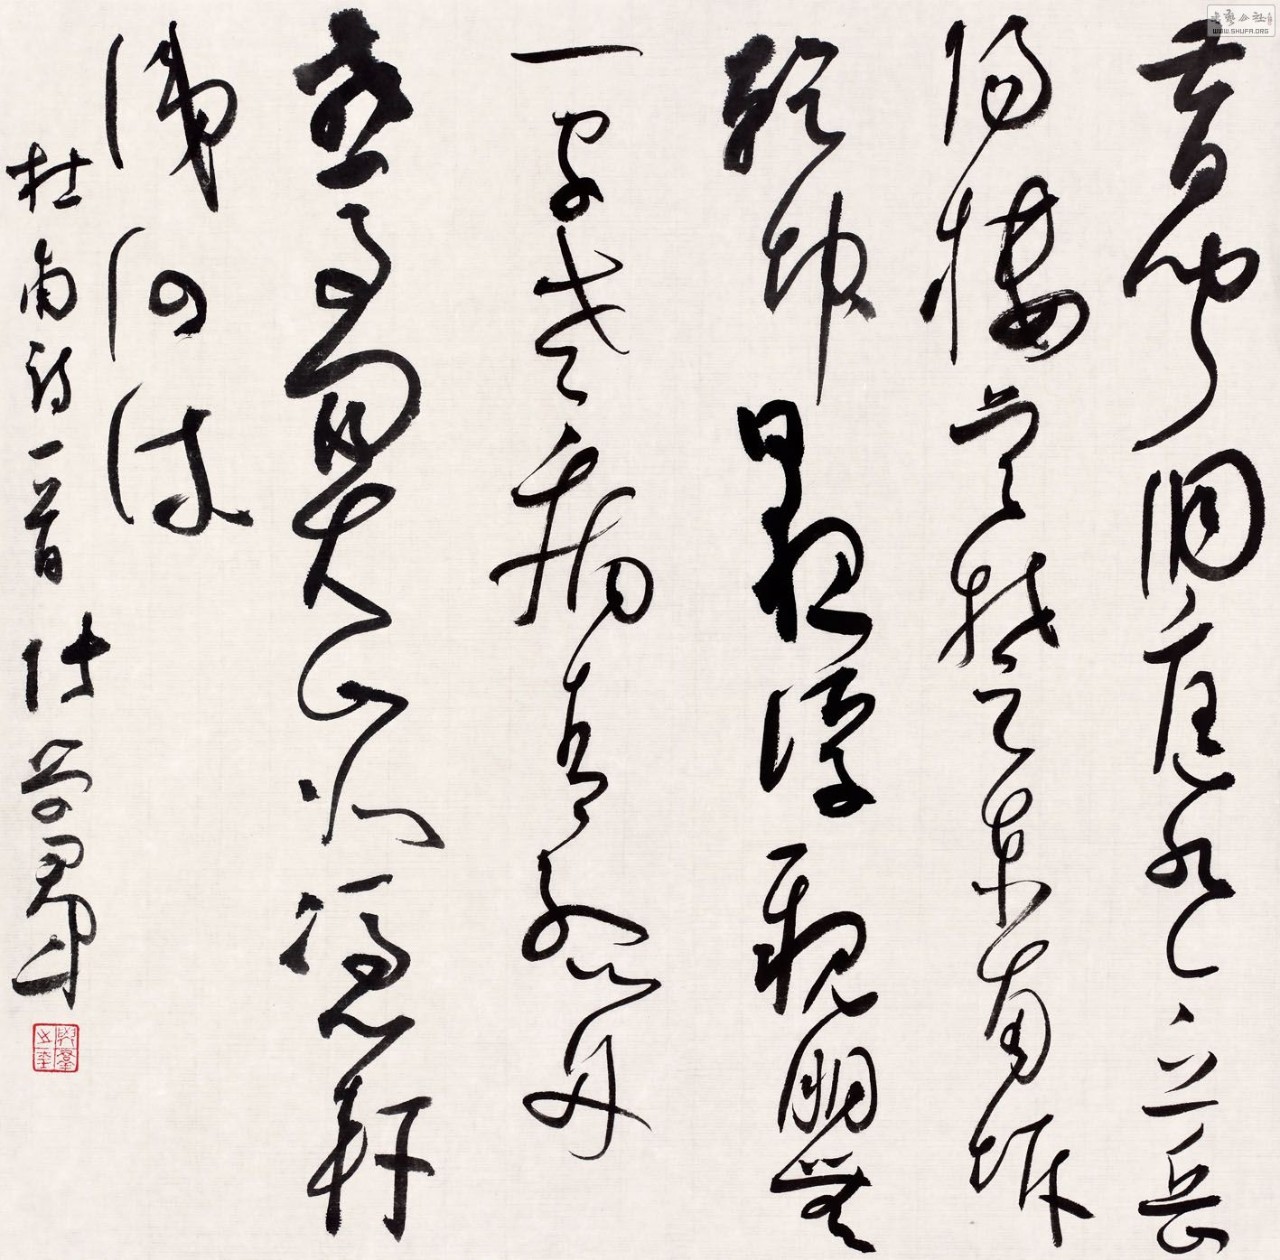 昔聞洞庭水今上岳
陽樓吳楚東南坼
乾坤日夜浮親朋無
一字老病有孤舟
戎馬關山北憑軒
涕泗流
杜甫詩一首
书法公社
WWW.SHUFA.ORG